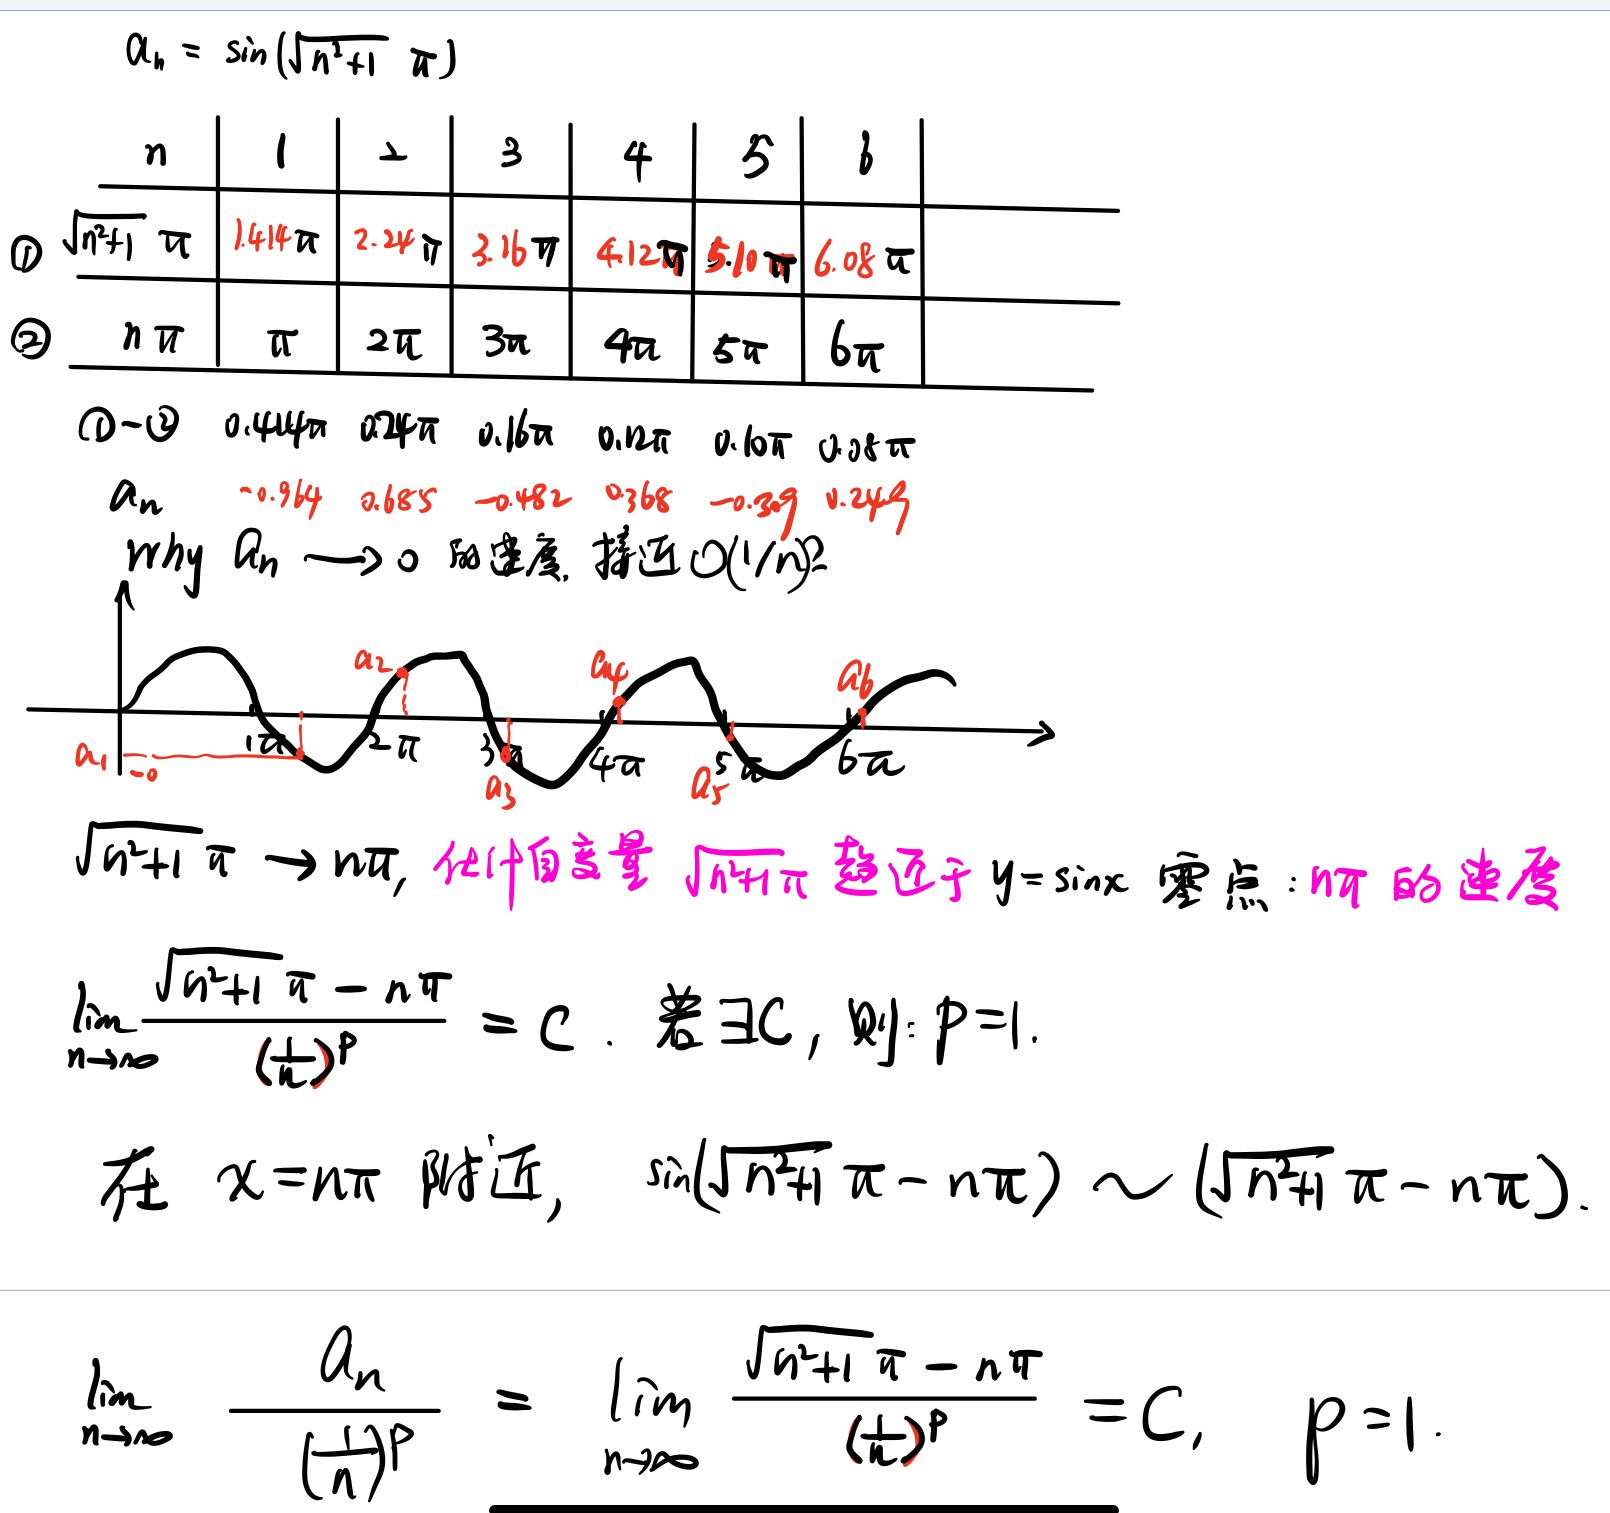 aₙ = sin(√(n²+1) π)
n 1 2 3 4 5 6
① √(n²+1) π 1.414π 2.24π 3.16π 4.12π 5.10π 6.08π
② nπ π 2π 3π 4π 5π 6π
①-② 0.414π 0.24π 0.16π 0.12π 0.10π 0.08π
aₙ -0.964 0.685 -0.482 0.368 -0.309 0.249
Why aₙ → 0 的速度. 接近 O(1/n)?
a₂ a₄ a₆
1π 2π 3π 4π 5π 6π
a₁ -0 a₃ a₅
√(n²+1) π → nπ, 估计自变量 √(n²+1)π 趋近于 y=sinx 零点: nπ 的速度
lim n→∞ (√(n²+1) π - nπ)/(1/n)^p = C. 若∃C, 则: p=1.
在 x=nπ 附近, sin(√(n²+1) π - nπ) ~ (√(n²+1) π - nπ).
lim n→∞ aₙ/(1/n)^p = lim n→∞ (√(n²+1) π - nπ)/(1/n)^p = C, p=1.